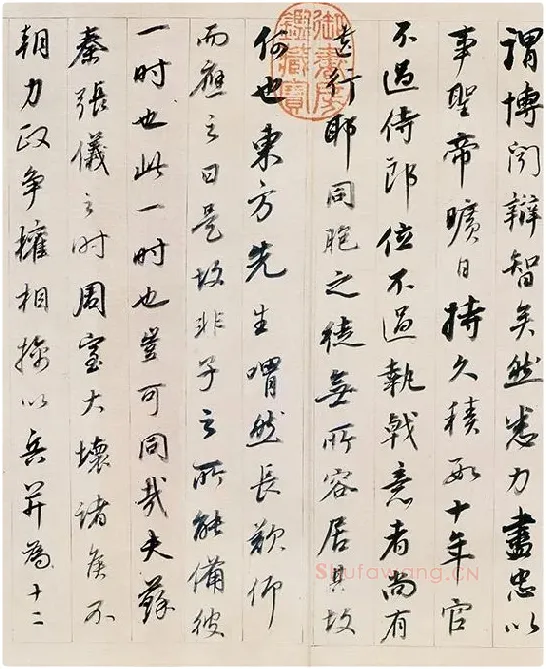 謂博聞辯智矣然悉力盡忠以
事聖帝曠日持久積數十年官
不過侍郎位不過執戟意者尚有
遺行耶同胞之徒無所容居其故
何也東方先生喟然長歎仰
而應之曰是故非子之所能備彼
一时也此一时也豈可同哉夫蘇
秦張儀之时周室大壞諸侯不
朝力政争權相擒以兵并為十二
御書房鑒藏寶
Shufawang.CN